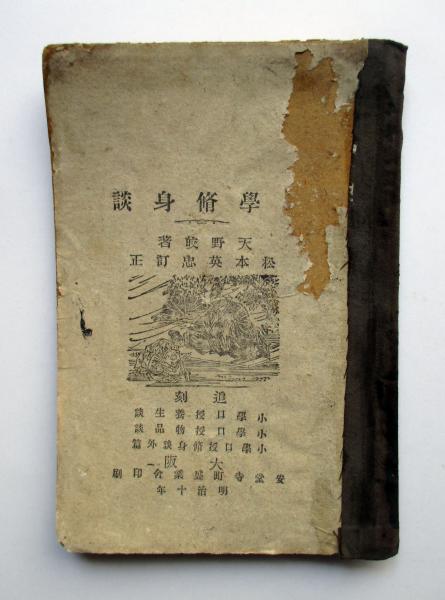 學脩身談
天野皎著
松本英忠訂正
追刻
小學口授養生談
小學口授物品談
小學口授脩身談外篇
大阪
安堂寺町盛業會印刷
明治十年